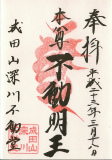 奉拝
平成二十三年三月八日
本尊
不動明王
成田山深川不動堂